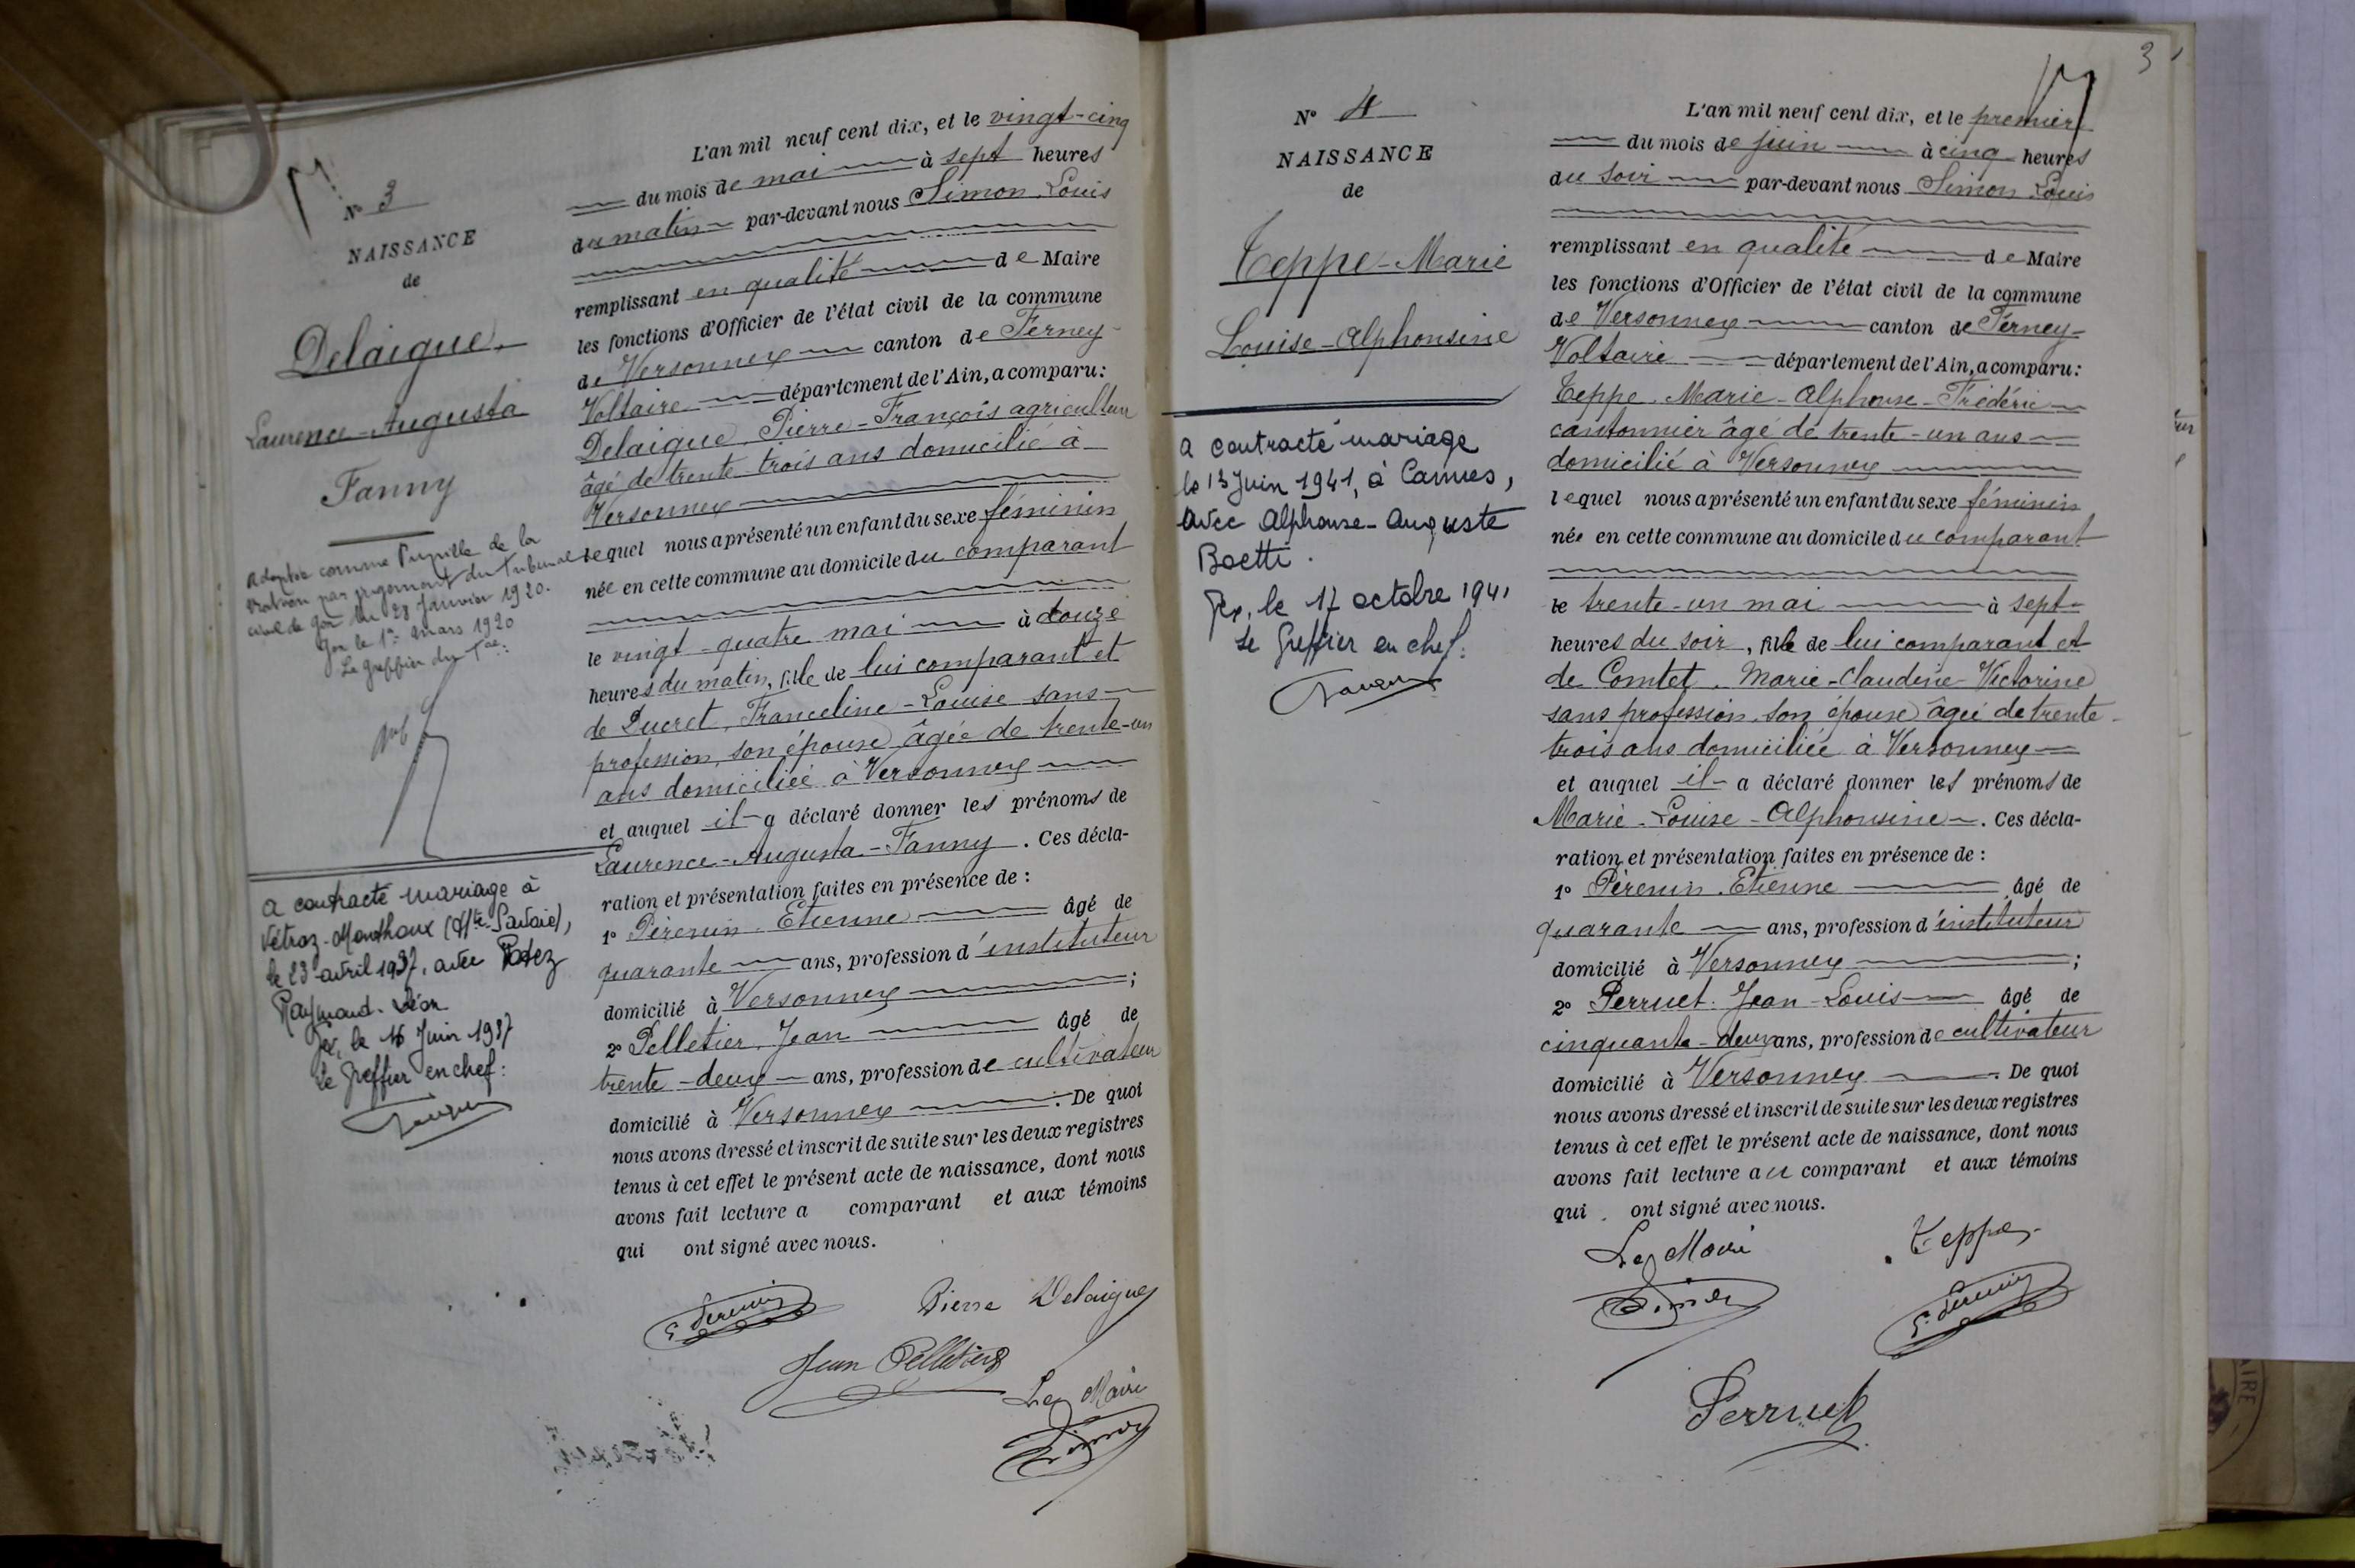 N° 3
NAISSANCE
de
Delaigue
Laurence-Augusta
Fanny
Adoptée comme Pupille de la
Nation par jugement du Tribunal
civil de Gex du 28 Janvier 1920.
Gex le 1er Mars 1920
Le greffier du Tal:
a contracté mariage à
Vétraz-Monthoux (Hte-Savoie),
le 23 avril 1937, avec
Raymond-Léon
Gex, le 16 Juin 1937
Le Greffier en chef:
L'an mil neuf cent dix, et le vingt-cinq
du mois de mai à sept heures
du matin par-devant nous Simon, Louis
remplissant en qualité de Maire
les fonctions d'Officier de l'état civil de la commune
de Versonnex canton de Ferney-
Voltaire département de l'Ain, a comparu:
Delaigue, Pierre-François agriculteur
âgé de trente-trois ans domicilié à
Versonnex
lequel nous a présenté un enfant du sexe féminin
née en cette commune au domicile du comparant
le vingt-quatre mai à douze
heures du matin, fille de lui comparant et
de Ducret, Franceline-Louise sans
profession, son épouse âgée de trente-un
ans domiciliée à Versonnex
et auquel il a déclaré donner les prénoms de
Laurence-Augusta-Fanny. Ces décla-
ration et présentation faites en présence de :
1° Pérenin Etienne âgé de
quarante ans, profession d'instituteur
domicilié à Versonnex ;
2° Pelletier, Jean âgé de
trente-deux ans, profession de cultivateur
domicilié à Versonnex . De quoi
nous avons dressé et inscrit de suite sur les deux registres
tenus à cet effet le présent acte de naissance, dont nous
avons fait lecture a comparant et aux témoins
qui ont signé avec nous.
E. Pérenin Pierre Delaigue
Jean Pelletier
Le Maire
Simon
3
N° 4
NAISSANCE
de
Teppe-Marie
Louise-Alphonsine
a contracté mariage
le 13 Juin 1941, à Cannes,
avec Alphonse-Auguste
Boetti.
Gex, le 17 octobre 1941
Le Greffier en chef:
L'an mil neuf cent dix, et le premier
du mois de juin à cinq heures
du soir par-devant nous Simon Louis
remplissant en qualité de Maire
les fonctions d'Officier de l'état civil de la commune
de Versonnex canton de Ferney-
Voltaire département de l'Ain, a comparu:
Teppe, Marie-Alphonse-Frédéric
cantonnier âgé de trente-un ans
domicilié à Versonnex
lequel nous a présenté un enfant du sexe féminin
née en cette commune au domicile du comparant
le trente-un mai à sept
heures du soir, fille de lui comparant et
de Comtet, Marie-Claudine-Victorine
sans profession, son épouse âgée de trente-
trois ans domiciliée à Versonnex
et auquel il a déclaré donner les prénoms de
Marie-Louise-Alphonsine. Ces décla-
ration et présentation faites en présence de :
1° Pérenin Etienne âgé de
quarante ans, profession d'instituteur
domicilié à Versonnex ;
2° Perruet Jean-Louis âgé de
cinquante-deux ans, profession de cultivateur
domicilié à Versonnex . De quoi
nous avons dressé et inscrit de suite sur les deux registres
tenus à cet effet le présent acte de naissance, dont nous
avons fait lecture au comparant et aux témoins
qui ont signé avec nous.
Le Maire Teppe
Simon E. Pérenin
Perruet
AIRE